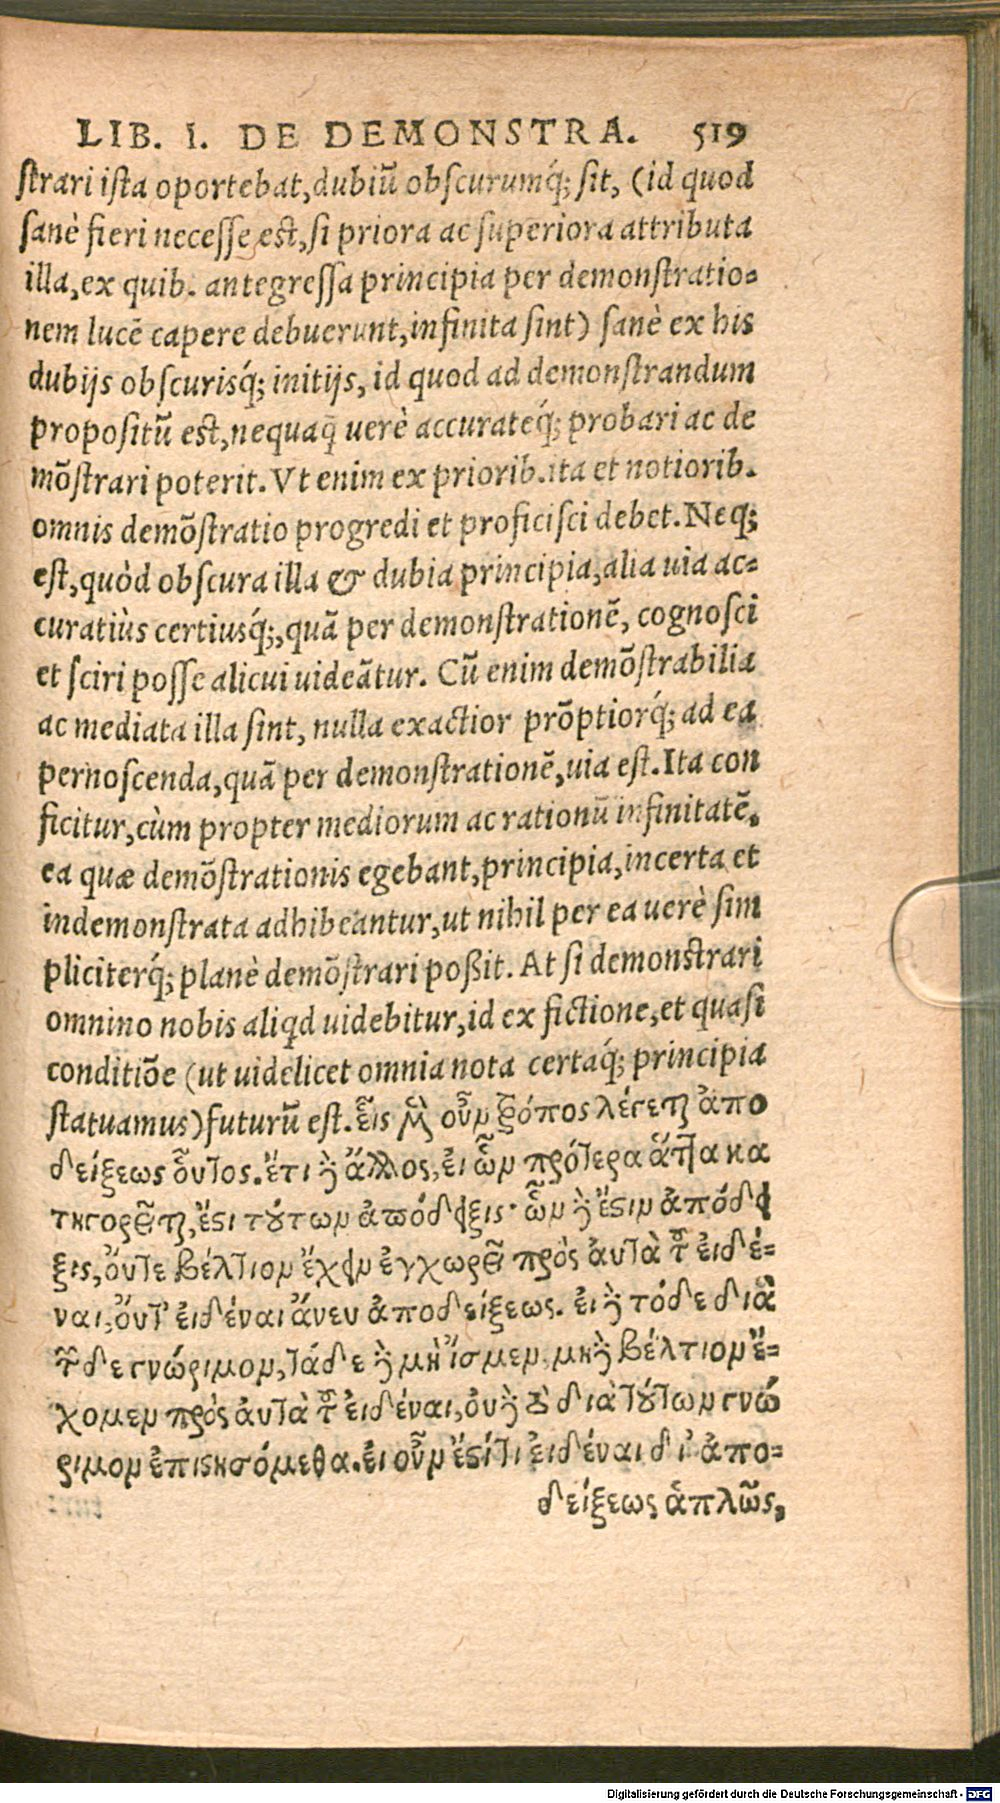 LIB. I. DE DEMONSTRA. 519
strari ista oportebat, dubiũ obscurumq́; sit, (id quod
sanè fieri necesse est, si priora ac superiora attributa
illa, ex quib. antegressa principia per demonstratio-
nem lucē capere debuerunt, infinita sint) sanè ex his
dubijs obscurisq́; initijs, id quod ad demonstrandum
propositũ est, nequaq̃ uerè accurateq́; probari ac de
mõstrari poterit. Vt enim ex priorib. ita et notiorib.
omnis demõstratio progredi et proficisci debet. Neq;
est, quòd obscura illa & dubia principia, alia uia ac-
curatiùs certiusq́;, quã per demonstrationē, cognosci
et sciri posse alicui uideãtur. Cũ enim demõstrabilia
ac mediata illa sint, nulla exactior prõptiorq́; ad ea
pernoscenda, quã per demonstrationē, uia est. Ita con
ficitur, cùm propter mediorum ac rationũ infinitatē,
ea quæ demõstrationis egebant, principia, incerta et
indemonstrata adhibeantur, ut nihil per ea uerè sim
pliciterq́; planè demõstrari poßit. At si demonstrari
omnino nobis aliqd uidebitur, id ex fictione, et quasi
conditiõe (ut uidelicet omnia nota certaq́; principia
statuamus) futurũ est. εἷς μὲν οὖν τρόπος λέγεται ἀπο
δείξεως οὗτος. ἔτι δὲ ἄλλος, εἰ ὧν πρότερα ἄττα κα
τηγορεῖται, ἔστι τούτων ἀπόδειξις· ὧν δὲ ἔστιν ἀπόδει
ξις, οὔτε βέλτιον ἔχειν ἐγχωρεῖ πρὸς αὐτὰ τοῦ εἰδέ-
ναι, οὔτ' εἰδέναι ἄνευ ἀποδείξεως. εἰ δὲ τόδε διὰ
τῶνδε γνώριμον, τάδε δὲ μὴ ἴσμεν, μηδὲ βέλτιον ἔ-
χομεν πρὸς αὐτὰ τοῦ εἰδέναι, οὐδὲ τὸ διὰ τούτων γνώ
ριμον ἐπιστησόμεθα. εἰ οὖν ἔστί τι εἰδέναι δι' ἀπο-
δείξεως ἁπλῶς,
Digitalisierung gefördert durch die Deutsche Forschungsgemeinschaft - DFG